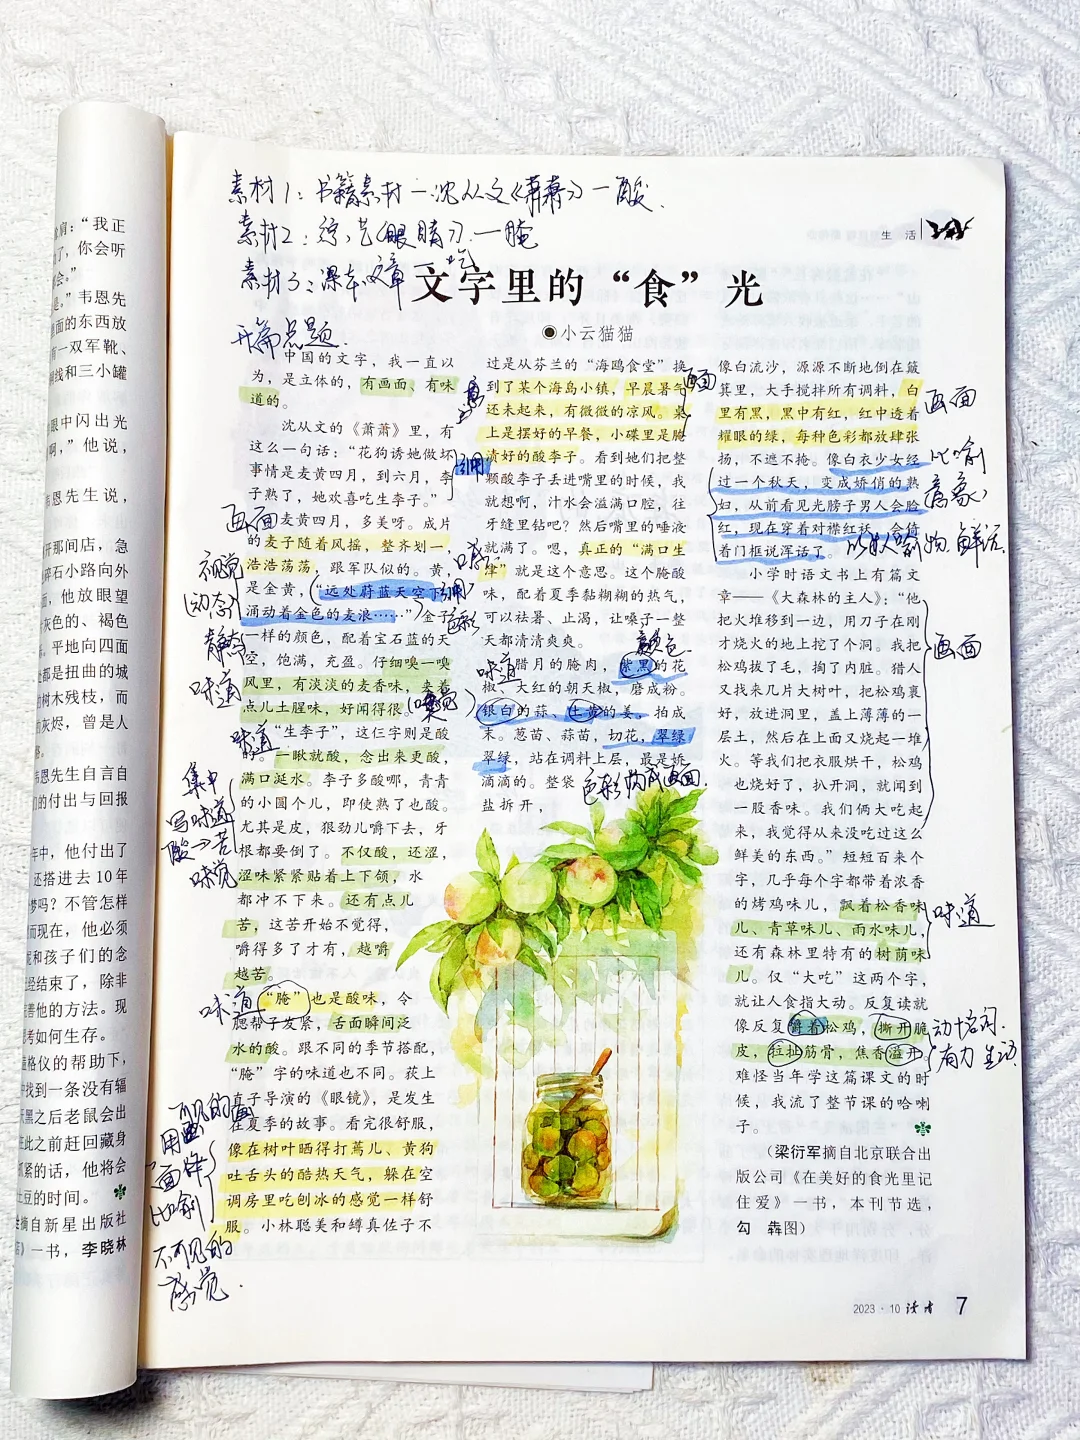 肩：“我正
了，你会听
会。”
是。”韦恩先
面的东西放
有一双军靴、
线和三小罐
眼中闪出光
啊，”他说，
韦恩先生说，
开那间店，急
碎石小路向外
面，他放眼望
灰色的、褐色
。平地向四面
处都是扭曲的城
树木残枝，而
灰烬，曾是人
韦恩先生自言自
的付出与回报
年中，他付出了
还搭进去10年
梦吗？不管怎样
而现在，他必须
妮和孩子们的念
经结束了，除非
善他的方法。现
考如何生存。
格仪的帮助下，
找到一条没有辐
天黑之后老鼠会出
在此之前赶回藏身
抓紧的话，他将会
土豆的时间。
摘自新星出版社
》一书，李晓林
素材1：书籍素材—沈从文《萧萧》—酸
素材2：综艺《眼睛》—腌
素材3：课本文章—吃
生活
文字里的“食”光
◉小云猫猫
开篇点题
中国的文字，我一直以
为，是立体的，有画面、有味
道的。
沈从文的《萧萧》里，有
这么一句话：“花狗诱她做坏
事情是麦黄四月，到六月，李
子熟了，她欢喜吃生李子。”
麦黄四月，多美呀。成片
的麦子随着风摇，整齐划一，
浩浩荡荡，跟军队似的。黄，
是金黄，（“远处蔚蓝天空下
涌动着金色的麦浪……”）金子
一样的颜色，配着宝石蓝的天
空，饱满，充盈。仔细嗅一嗅
风里，有淡淡的麦香味，夹着
点儿土腥味，好闻得很。
“生李子”，这仨字则是酸
的。一瞅就酸，念出来更酸，
满口涎水。李子多酸哪，青青
的小圆个儿，即使熟了也酸。
尤其是皮，狠劲儿嚼下去，牙
根都要倒了。不仅酸，还涩，
涩味紧紧贴着上下颌，水
都冲不下来。还有点儿
苦，这苦开始不觉得，
嚼得多了才有，越嚼
越苦。
“腌”也是酸味，令
腮帮子发紧，舌面瞬间泛
水的酸。跟不同的季节搭配，
“腌”字的味道也不同。荻上
直子导演的《眼镜》，是发生
在夏季的故事。看完很舒服，
像在树叶晒得打蔫儿、黄狗
吐舌头的酷热天气，躲在空
调房里吃刨冰的感觉一样舒
服。小林聪美和罇真佐子不
画面
视觉
（动态）
静态
味道
（嗅觉）
味道
集中
写味道
酸→苦
味觉
味道
用可见的画
面作
比喻
不可见的
感觉
引用
引用
色彩
过是从芬兰的“海鸥食堂”换
到了某个海岛小镇，早晨暑气
还未起来，有微微的凉风。桌
上是摆好的早餐，小碟里是腌
渍好的酸李子。看到她们把整
颗酸李子丢进嘴里的时候，我
就想啊，汁水会溢满口腔，往
牙缝里钻吧？然后嘴里的唾液
就满了。嗯，真正的“满口生
津”就是这个意思。这个腌酸
味，配着夏季黏糊糊的热气，
可以祛暑、止渴，让嗓子一整
天都清清爽爽。
腊月的腌肉，紫黑的花
椒、大红的朝天椒，磨成粉。
银白的蒜、土黄的姜，拍成
末。葱苗、蒜苗，切花，翠绿
翠绿，站在调料上层，最是娇
滴滴的。整袋
盐拆开，
画面
口感
颜色
味道
色彩构成画面.
像白流沙，源源不断地倒在簸
箕里，大手搅拌所有调料，白
里有黑，黑中有红，红中透着
耀眼的绿，每种色彩都放肆张
扬，不遮不掩。像白衣少女经
过一个秋天，变成娇俏的熟
妇，从前看见光膀子男人会脸
红，现在穿着对襟红袄，会倚
着门框说浑话了。
小学时语文书上有篇文
章——《大森林的主人》：“他
把火堆移到一边，用刀子在刚
才烧火的地上挖了个洞。我把
松鸡拔了毛，掏了内脏。猎人
又找来几片大树叶，把松鸡裹
好，放进洞里，盖上薄薄的一
层土，然后在上面又烧起一堆
火。等我们把衣服烘干，松鸡
也烧好了，扒开洞，就闻到
一股香味。我们俩大吃起
来，我觉得从来没吃过这么
鲜美的东西。”短短百来个
字，几乎每个字都带着浓香
的烤鸡味儿，飘着松香味
儿、青草味儿、雨水味儿，
还有森林里特有的树荫味
儿。仅“大吃”这两个字，
就让人食指大动。反复读就
像反复嚼着松鸡，撕开脆
皮，拉扯筋骨，焦香溢开。
难怪当年学这篇课文的时
候，我流了整节课的哈喇
子。
（梁衍军摘自北京联合出
版公司《在美好的食光里记
住爱》一书，本刊节选，
勾　犇图）
画面
比喻
意象
以人喻物 鲜活
画面
味道
动词
有力 生动
2023·10 读者 7